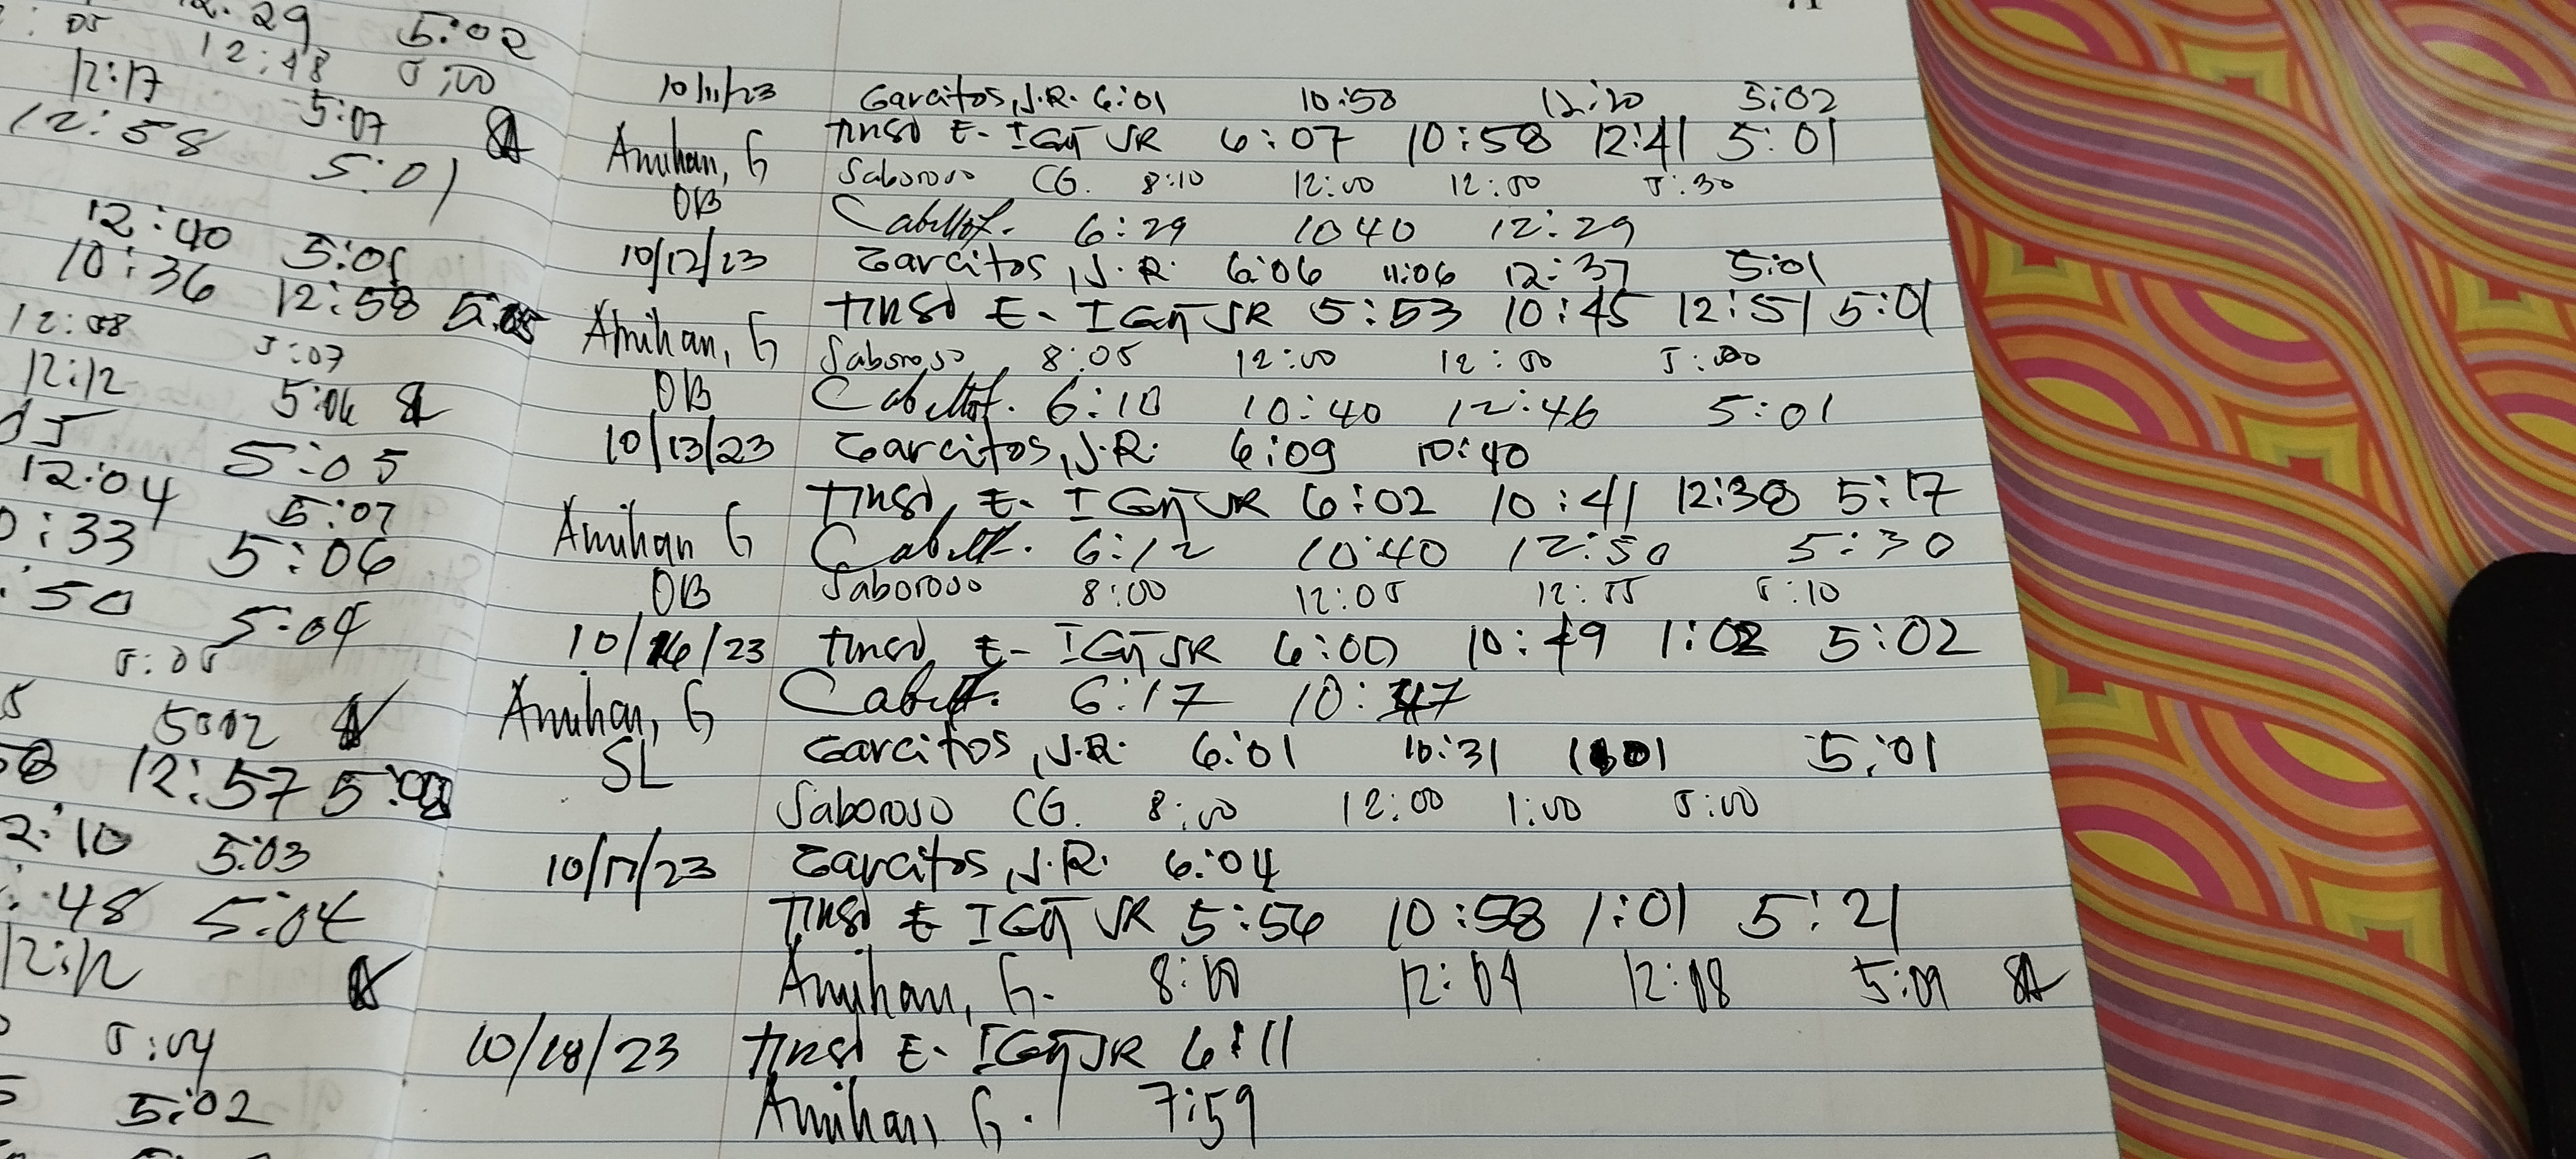 12:29 5:02
: 05 12:48 5:00
12:17 5:07
12:58 5:01
12:40 5:05
10:36 12:58 5:05
12:08 5:07
12:12 5:06
5:05
12:04 5:07
:33 5:06
:50 5:04
5:05
5 5:02
12:57 5:08
2:10 5:03
:48 5:04
12:12
5:04
5:02
10/11/23 Garcitos, J.R. 6:01 10:58 12:20 5:02
E. JR 6:07 10:58 12:41 5:01
Amihan, G
Saboroso CG. 8:10 12:00 12:50 5:30
OB
6:29 1040 12:29
10/12/23 Garcitos, J.R. 6:06 11:06 12:37 5:01
E. JR 5:53 10:45 12:51 5:01
Amihan, G
Saboroso 8:05 12:00 12:50 5:00
OB
6:10 10:40 12:46 5:01
10/13/23 Garcitos, J.R. 6:09 10:40
E. JR 6:02 10:41 12:38 5:17
Amihan G
6:12 10:40 12:50 5:30
OB Saboroso 8:00 12:05 12:55 5:10
10/16/23 E- JR 6:00 10:49 1:02 5:02
6:17 10:47
Amihan, G
Garcitos, J.R. 6:01 10:31 1:01 5:01
SL
Saboroso CG. 8:00 12:00 1:00 5:00
10/17/23 Garcitos, J.R. 6:04
E JR 5:56 10:58 1:01 5:21
Amihan, G. 8:00 12:04 12:08 5:09
10/18/23 E. JR 6:11
Amihan, G. 7:59